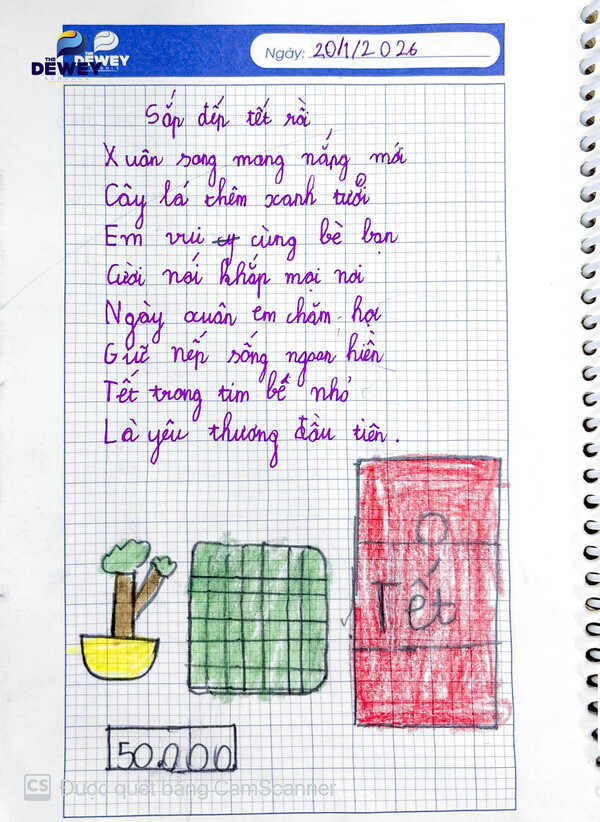 THE DEWEY SCHOOLS
THE DEWEY SCHOOLS
Ngày: 20/1/2026
Sắp đếp tết rồi
Xuân sang mang nắng mới
Cây lá thêm xanh tươi
Em vui cùng bè bạn
Cười nói khắp mọi nơi
Ngày xuân em chăm họi
Giữ nếp sống ngoan hiền
Tết trong tim bé nhỏ
Là yêu thương đầu tiên.
Tết
50.000
CS Được quét bằng CamScanner